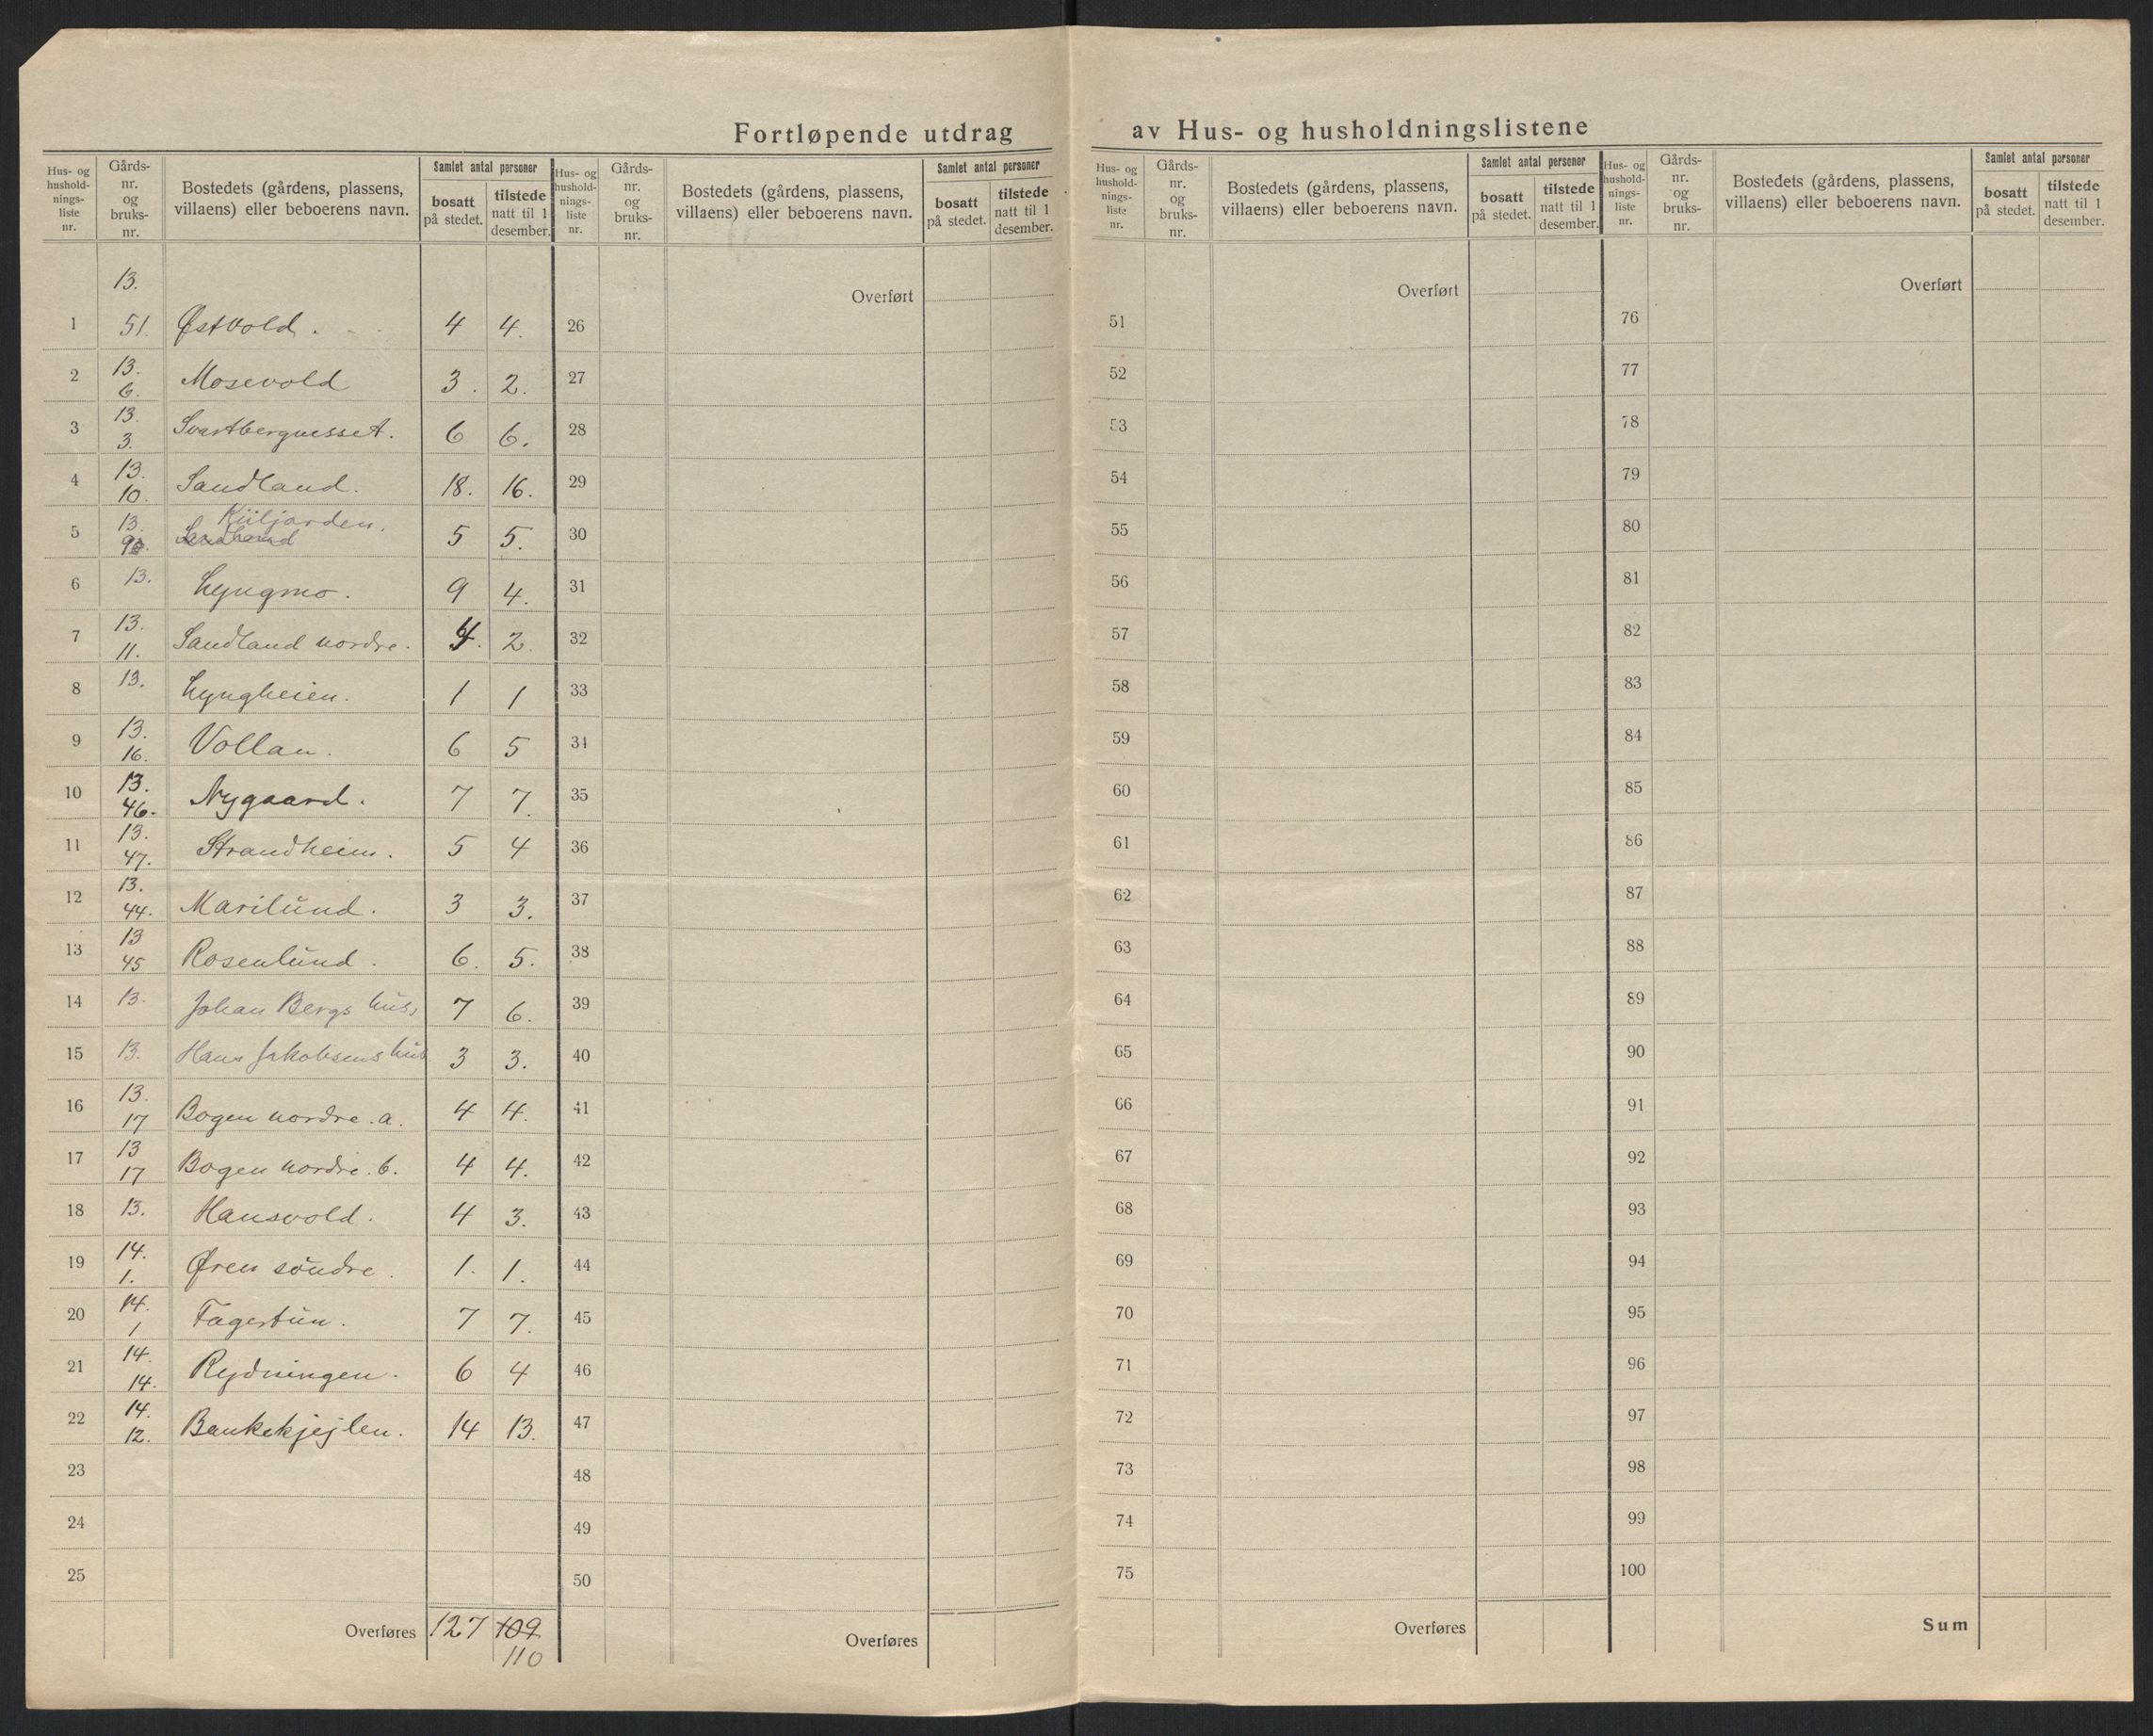 Fortløpende utdrag av Hus- og husholdningslistene
Hus- og hushold-nings-liste nr. Gårds-nr. og bruks-nr. Bostedets (gårdens, plassens, villaens) eller beboerens navn. Samlet antal personer bosatt på stedet. tilstede natt til 1 desember.
1 13. 51. Østvold. 4 4.
2 13. 6. Mosevold 3. 2.
3 13. 3. Svartbergnesset. 6 6.
4 13. 10. Sandland. 18. 16.
5 13. 9. Kiiljorden. Sandland 5 5.
6 13. Lyngmo. 9 4.
7 13. 11. Sandland nordre. 4. 2.
8 13. Lyngheien. 1 1
9 13. 16. Vollan. 6 5
10 13. 46. Nygaard. 7 7.
11 13. 47. Strandheim. 5 4
12 13. 44. Marilund. 3 3.
13 13 45 Rosenlund. 6. 5.
14 13. Johan Bergs hus, 7 6.
15 13. Hans Jakobsens hus 3 3.
16 13. 17 Bogen nordre. a. 4 4.
17 13 17 Bogen nordre. b. 4 4.
18 13. Hansvold. 4 3.
19 14. 1. Øren söndre. 1. 1.
20 14. 1 Fagertun. 7 7.
21 14. 14. Rydningen. 6 4
22 14. 12. Bankekjejlen. 14 13.
23
24
25
Overføres 127 109
110
Hus- og hushold-nings-liste nr. Gårds-nr. og bruks-nr. Bostedets (gårdens, plassens, villaens) eller beboerens navn. Samlet antal personer bosatt på stedet. tilstede natt til 1 desember.
Overført
26
27
28
29
30
31
32
33
34
35
36
37
38
39
40
41
42
43
44
45
46
47
48
49
50
Overføres
Hus- og hushold-nings-liste nr. Gårds-nr. og bruks-nr. Bostedets (gårdens, plassens, villaens) eller beboerens navn. Samlet antal personer bosatt på stedet. tilstede natt til 1 desember.
Overført
51
52
53
54
55
56
57
58
59
60
61
62
63
64
65
66
67
68
69
70
71
72
73
74
75
Overføres
Hus- og hushold-nings-liste nr. Gårds-nr. og bruks-nr. Bostedets (gårdens, plassens, villaens) eller beboerens navn. Samlet antal personer bosatt på stedet. tilstede natt til 1 desember.
Overført
76
77
78
79
80
81
82
83
84
85
86
87
88
89
90
91
92
93
94
95
96
97
98
99
100
Sum